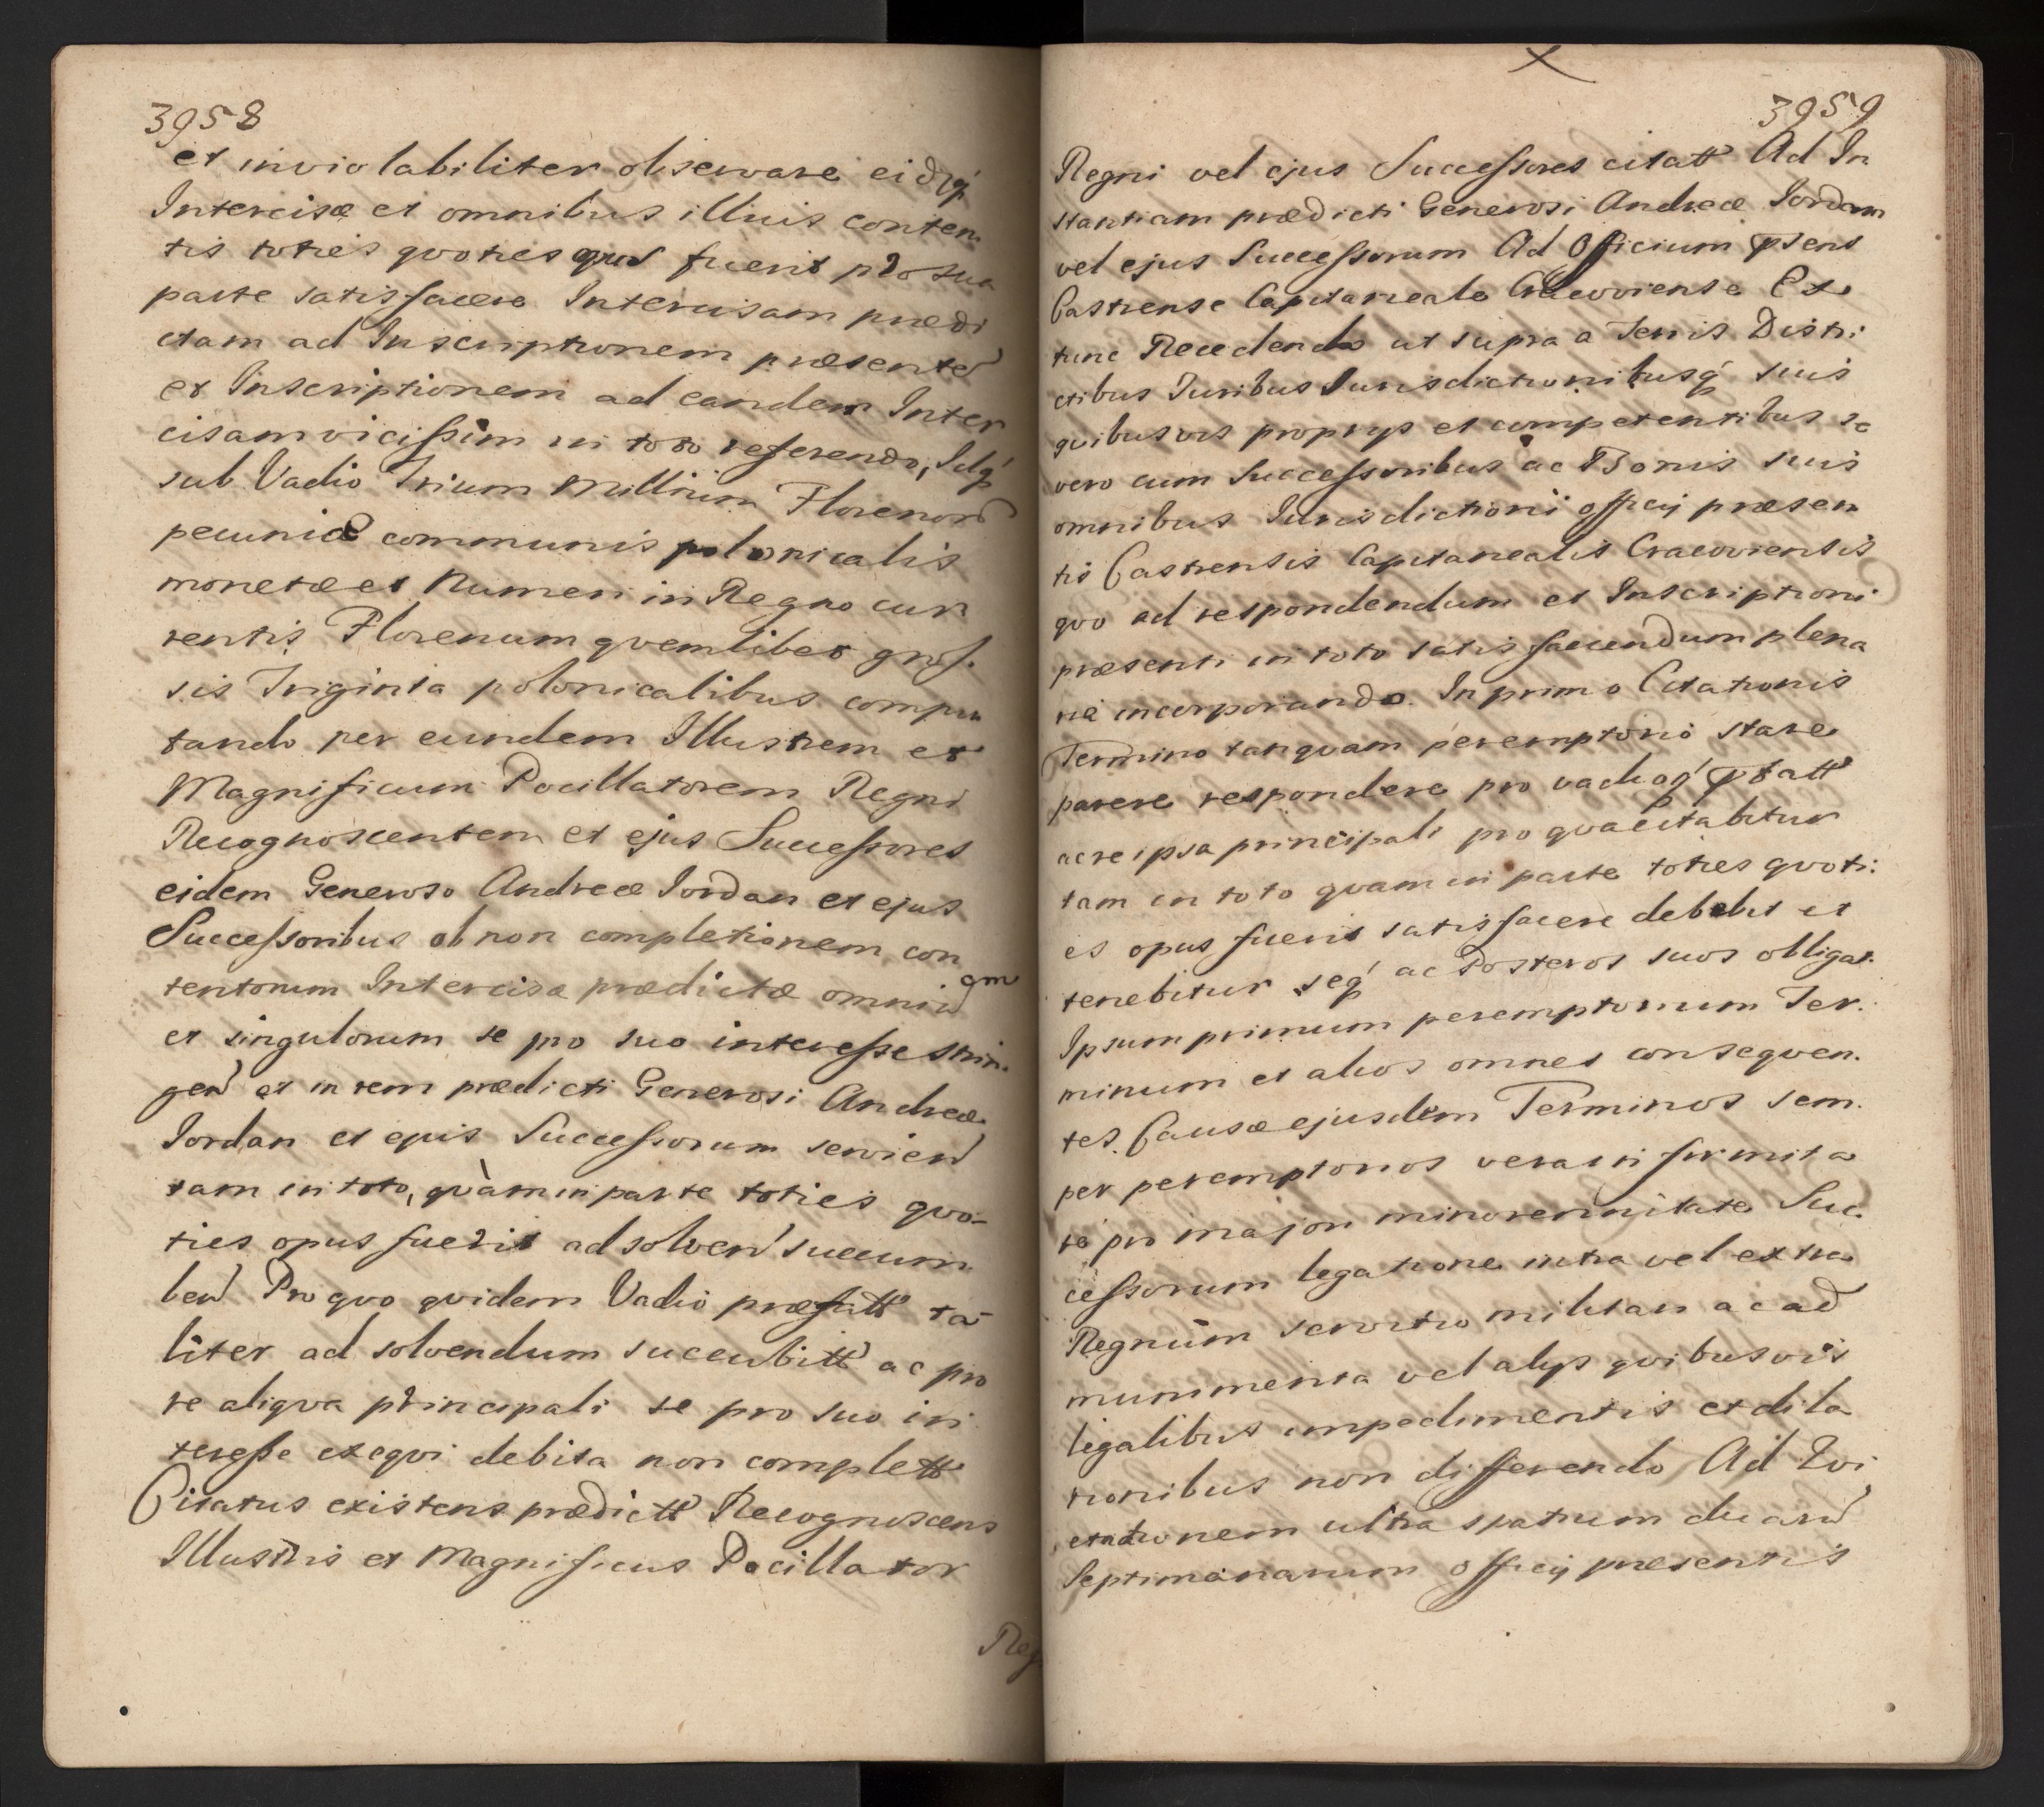 3958
et inviolabiliter observare eidq́
Intercisæ et omnibus illius conten
tis toties quoties opus fuerit pro sua
parte satisfacere Intercisam prædi
ctam ad Inscriptionem præsente
et Inscriptionem ad eandem Inter
cisam vicissim in toto referendo, Idq́
sub Vadio Trium Millium Florenor
pecuniæ communis polonicalis
monetæ et Numeri in Regno cur
rentis Florenum quemlibet gros.
sis Triginta polonicalibus compu
tando per eundem Illustrem et
Magnificum Pocillatorem Regni
Recognoscentem et ejus Successores
eidem Generoso Andreæ Jordan et ejus
Successoribus ob non completionem con
tentorum Intercisæ prædictæ omniu om
et singulorum se pro suo interesse strin.
gen et in rem prædicti Generosi Andreæ
Jordan et ejus Successorum servien
tam in toto, quàm in parte toties quo-
ties opus fuerit ad solven succum
ben Pro quo quidem Vadio præfatt ta
liter ad solvendum succubitt ac pro
re aliqua principali se pro suo in
teresse exequi debita non complett
Citatus existens prædictt Recognoscens
Illustris et Magnificus Pocillator
Reg
3959
Regni vel ejus Successores citatt Ad In
stantiam prædicti Generosi Andreæ Jordan
vel ejus Successorum Ad Officium psens
Castrense Capitaneale Cracoviense Ex
tunc Recedendo ut supra a Terris Distri:
ctibus Juribus Jurisdictionibusq́ suis
quibusvis proprys et competentibus se
vero cum Successoribus ac Bonis suis
omnibus Jurisdictioni officij præsen
tis Castrensis Capitanealis Cracoviensis
quo ad respondendum et Inscriptioni
præsenti in toto satisfaciendum plena
riè incorporando. In primo Citationis
Termino tanquam peremptorio stare
parere respondere pro vadioq́ pfatt
ac re ipsa principali pro qua citabitur
tam in toto quam in parte toties quoti:
es opus fuerit satisfacere debebit et
tenebitur seq́ ac Posteros suos obligat.
Ipsum primum peremptorium Ter.
minum et alios omnes consequen.
tes. Causæ ejusdem Terminos sem.
per peremptorios vera infirmita
te pro majori minorennitate Suc.
cessorum legatione intra vel extra
Regnum servitio militari ac ad
munimenta vel alys quibusvis
legalibus impedimentis et dila
tionibus non differendo Ad Evi
ctionem ultra spatium duaru
Septimanarum officij præsentis